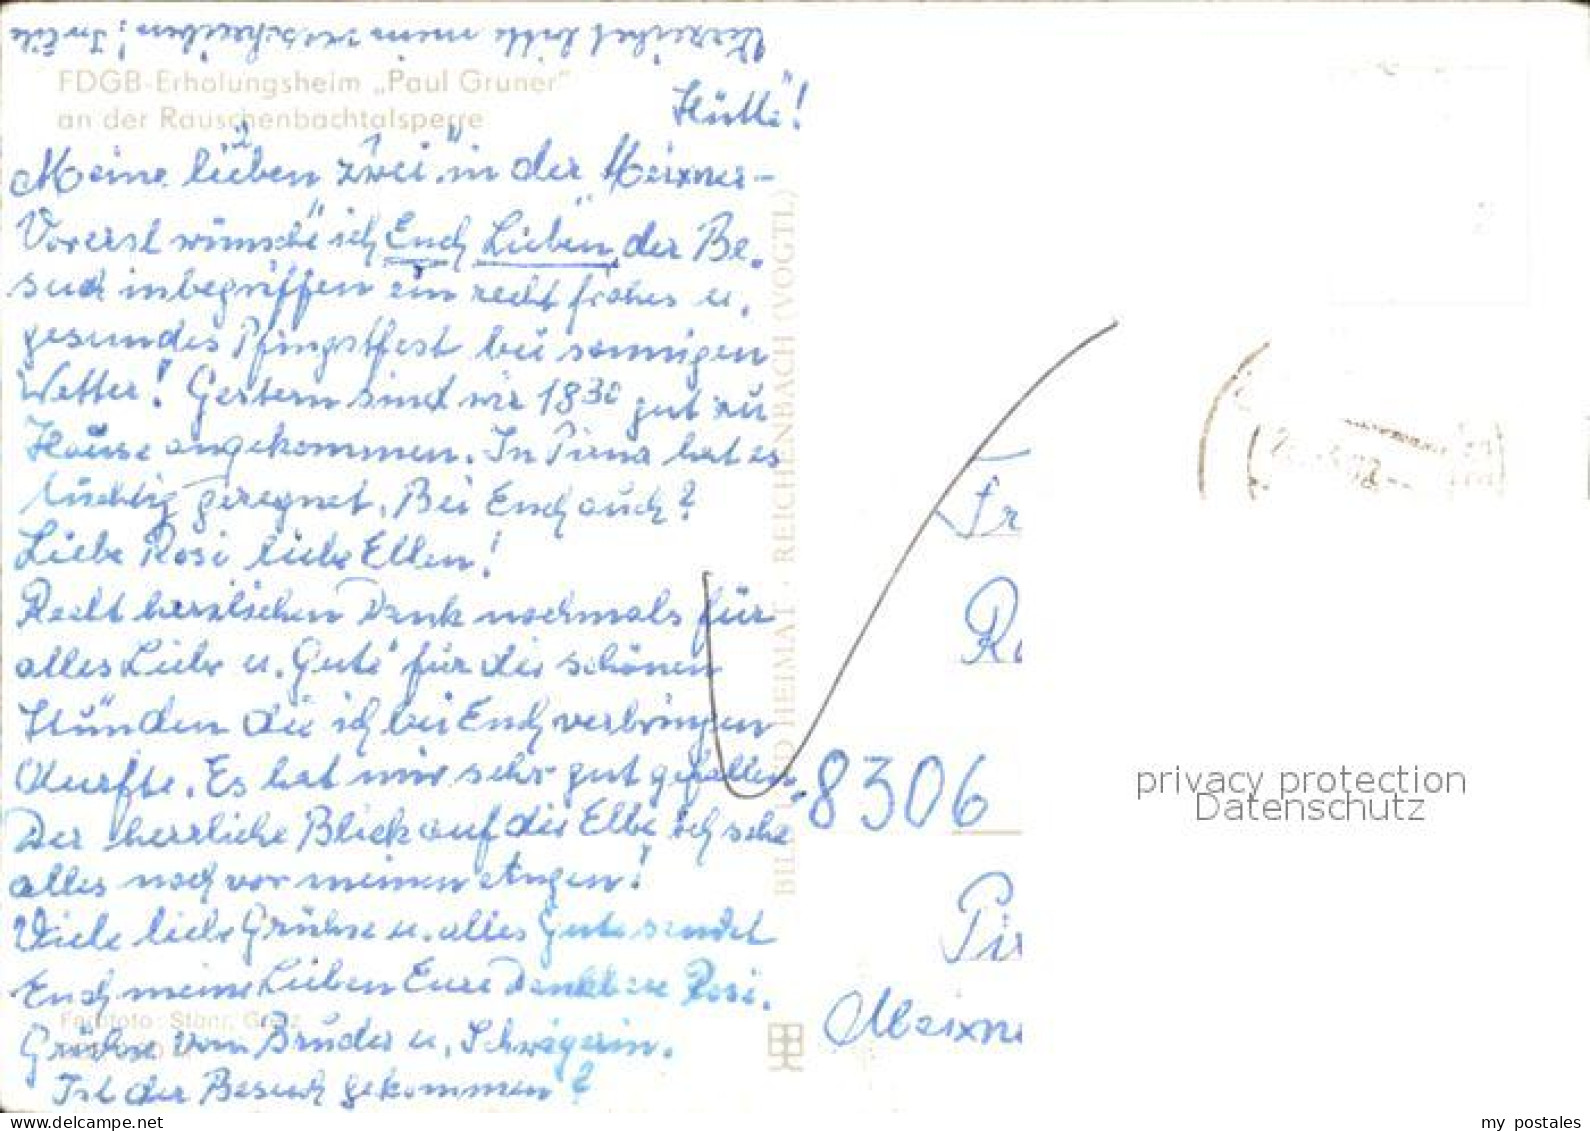 Verzeihet bitte mein verschreiben! In Eile
FDGB-Erholungsheim „Paul Gruner"
an der Rauschenbachtalsperre
Hütte"!
Meine lieben zwei in der Meixner-
Vorerst wünsche ich Euch Lieben, der Be-
such inbegriffen ein recht frohes u.
gesundes Pfingstfest bei sonnigen
Wetter! Gestern sind wir 18 30 gut zu
Hause angekommen. In Pirna hat es
tüchtig geregnet. Bei Euch auch?
Liebe Rosi liebe Ellen!
Recht herzlichen Dank nochmals für
alles Liebe u. Gute für die schönen
Stunden die ich bei Euch verbringen
durfte. Es hat mir sehr gut gefallen.
Der herrliche Blick auf die Elbe ich sehe
alles noch vor meinen Augen!
Viele liebe Grüße u. alles Gute sendet
Euch meine Lieben Eure Dankbare Rosi.
Farbfoto: Stöhr,
Grüße vom Bruder u. Schwägerin.
Ist der Besuch gekommen?
BILD UND HEIMAT · REICHENBACH (VOGTL)
Fr
8306
Pir
Meixn
privacy protection
Datenschutz
my postales